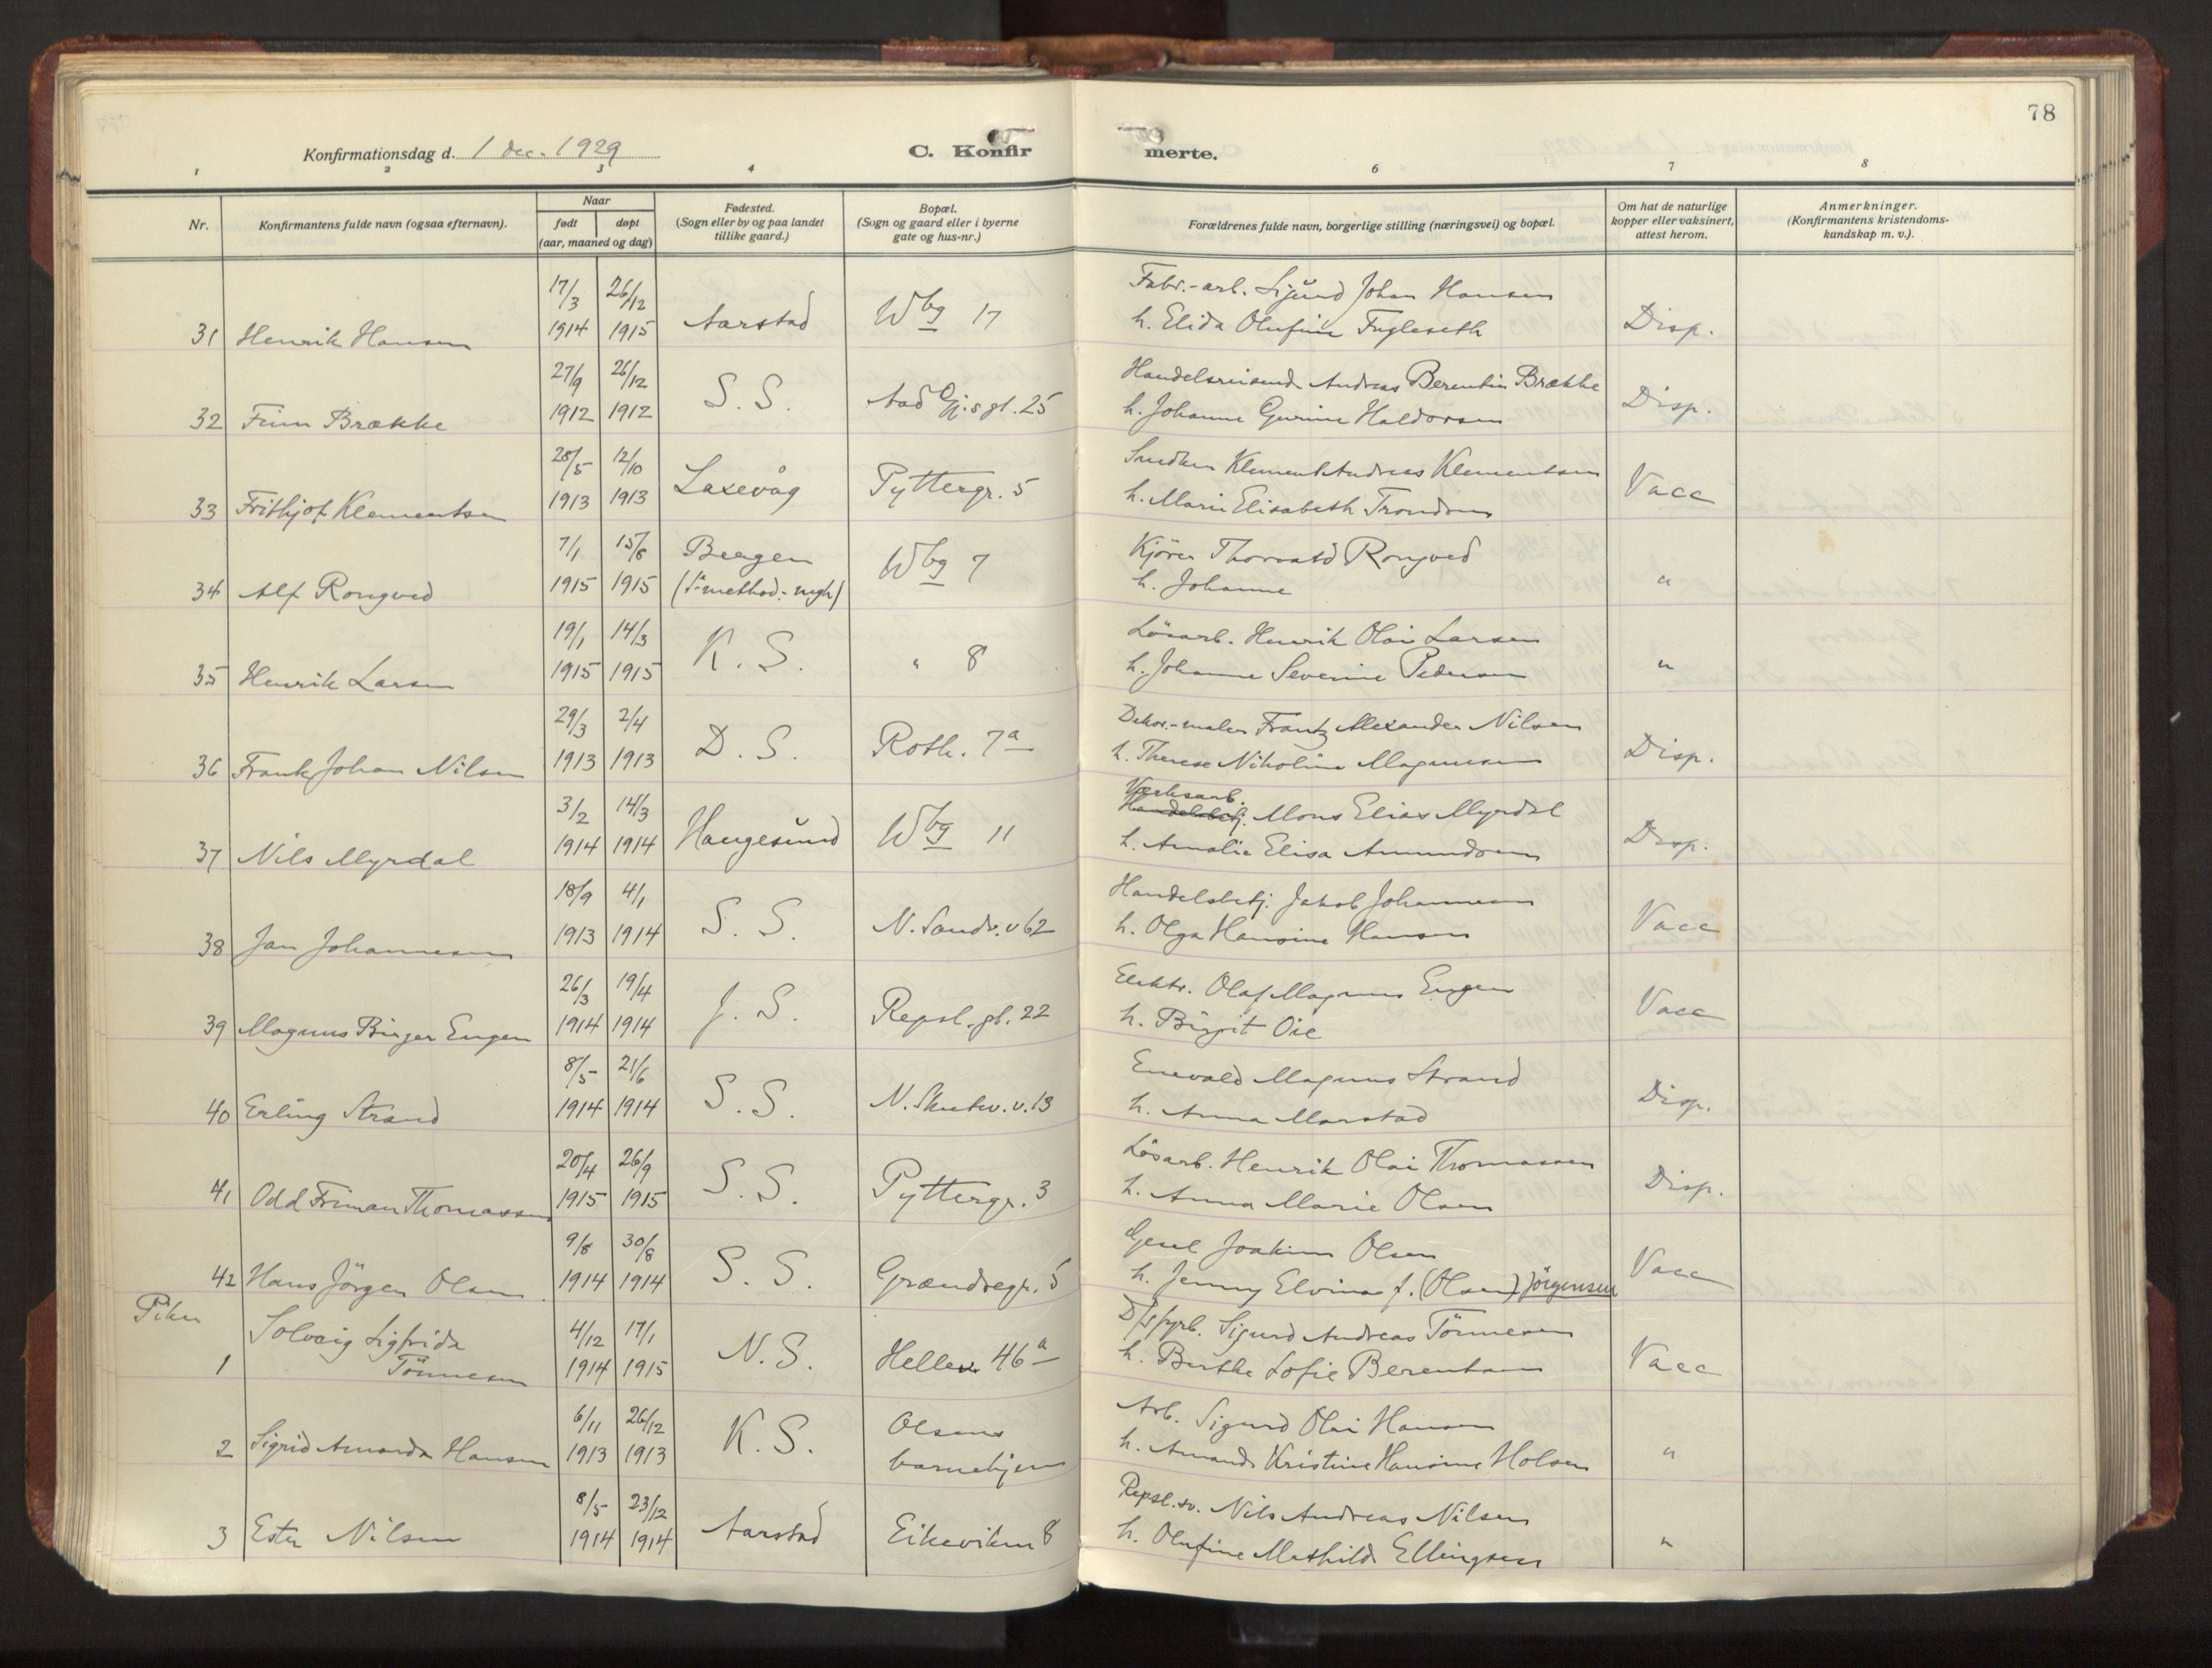 78
Konfirmationsdag d. 1 dec. 1929
C. Konfir
merte.
1 2 3 4 6 7 8
Nr.
Konfirmantens fulde navn (ogsaa efternavn).
Naar
født døpt
(aar, maaned og dag)
Fødested.
(Sogn eller by og paa landet
tillike gaard.)
Bopæl.
(Sogn og gaard eller i byerne
gate og hus-nr.)
Forældrenes fulde navn, borgerlige stilling (næringsvei) og bopæl.
Om hat de naturlige
kopper eller vaksinert,
attest herom.
Anmerkninger.
(Konfirmantens kristendoms-
kundskap m. v.).
17/3 26/12 Fabr.-arb. Sigurd Johan Hansen
31 Henrik Hansen 1914 1915 Aarstad Wbg 17 h. Elida Olufine Fugleseth Disp.
27/9 26/12 Handelsreisend Andreas Berentin Brække
32 Finn Brække 1912 1912 S. S. Aad Gj.s gt. 25 h. Johanne Gurine Haldorsen Disp.
28/5 12/10 Smeden Klement Andreas Klementsen
33 Frithjof Klementsen 1913 1913 Laxevåg Pyttergr. 5 h. Marie Elisabeth Trondsen Vacc
7/1 15/8 Bergen Kjører Thorvald Rongved
34 Alf Rongved 1915 1915 Wbg 7 h. Johanne "
19/1 14/3 Lösarb. Henrik Olai Larsen
35 Henrik Larsen 1915 1915 K. S. " 8 h. Johanne Severine Pedersen "
29/3 2/4 Dekor.-maler Frantz Alexander Nilsen
36 Frank Johan Nilsen 1913 1913 D. S. Roth. 7a h. Therese Nikoline Magnussen Disp.
Værksarb.
3/2 14/3 Handelsbetj. Mons Elias Myrdal
37 Nils Myrdal 1914 1914 Haugesund Wbg 11 h. Amalie Elisa Amundsen Disp.
18/9 4/1 Handelsbetj. Jakob Johannesen
38 Jan Johannesen 1913 1914 S. S. N. Sandv. v 62 h. Olga Hansine Hansen Vacc
26/3 19/4 Elektr. Olaf Magnus Eugen
39 Magnus Birger Eugen 1914 1914 J. S. Repsl. gt. 22 h. Birgit Oie Vacc
8/5 21/6 Enevald Magnus Strand
40 Erling Strand 1914 1914 S. S. N. Skutev. v. 13 h. Anna Marstad Disp.
20/4 26/9 Lösarb. Henrik Olai Thomassen
41 Odd Friman Thomassen 1915 1915 S. S. Pyttergr. 3 h. Anna Marie Olsen Disp.
9/8 30/8 Joakim Olsen
42 Hans Jörgen Olsen 1914 1914 S. S. Grændsegr. 5 h. Jenny Elvina f. (Olsen) Jörgensen Vacc
Piker
Solveig Sigfrida 4/12 17/1 D/s fyrb. Sigurd Andreas Tönnesen
1 Tönnesen 1914 1915 N. S. Hellev. 46a h. Berthe Sofie Berentsen Vacc
6/11 26/12 Olsens Arb. Sigurd Olai Hansen
2 Sigrid Amanda Hansen 1913 1913 K. S. barnehjem h. Amanda Kristine Hansine Holsen "
8/5 23/12 Repsl.sv. Nils Andreas Nilsen
3 Ester Nilsen 1914 1914 Aarstad Eikeviken 8 h. Olufine Mathilde Ellingsen "